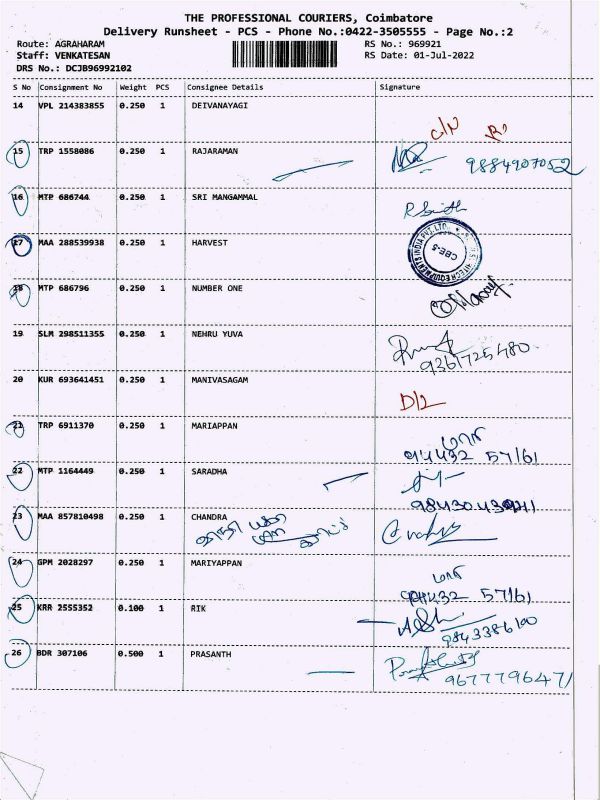 THE PROFESSIONAL COURIERS, Coimbatore
Delivery Runsheet - PCS - Phone No.:0422-3505555 - Page No.:2
Route: AGRAHARAM
RS No.: 969921
Staff: VENKATESAN
RS Date: 01-Jul-2022
DRS No.: DCJB96992102
S No Consignment No Weight PCS Consignee Details Signature
14 VPL 214383855 0.250 1 DEIVANAYAGI
15 TRP 1558086 0.250 1 RAJARAMAN
9884907052
16 MTP 686744 0.250 1 SRI MANGAMMAL
17 MAA 288539938 0.250 1 HARVEST
CBE-5
18 MTP 686796 0.250 1 NUMBER ONE
19 SLM 298511355 0.250 1 NEHRU YUVA
9361725480
20 KUR 693641451 0.250 1 MANIVASAGAM
D/L
21 TRP 6911370 0.250 1 MARIAPPAN
94432 57161
22 MTP 1164449 0.250 1 SARADHA
23 MAA 857810498 0.250 1 CHANDRA
24 GPM 2028297 0.250 1 MARIYAPPAN
94432 57161
25 KRR 2555352 0.100 1 RIK
9843386100
26 BDR 307106 0.500 1 PRASANTH
9677796471